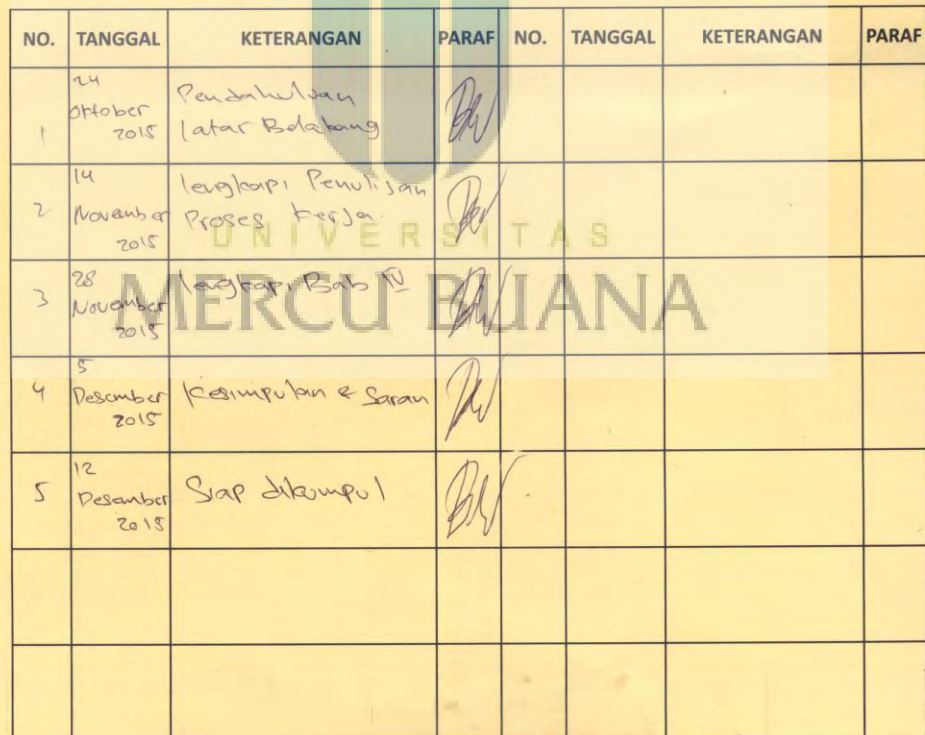 NO. TANGGAL KETERANGAN PARAF NO. TANGGAL KETERANGAN PARAF
1
24
Oktober
2015
Pendahuluan
Latar Belakang
2
14
November
2015
lengkapi Penulisan
Proses Kerja
UNIVERSITAS
MERCU BUANA
3
28
November
2015
lengkapi Bab IV
4
5
Desember
2015
Kesimpulan & Saran
5
12
Desember
2015
Siap dikumpul